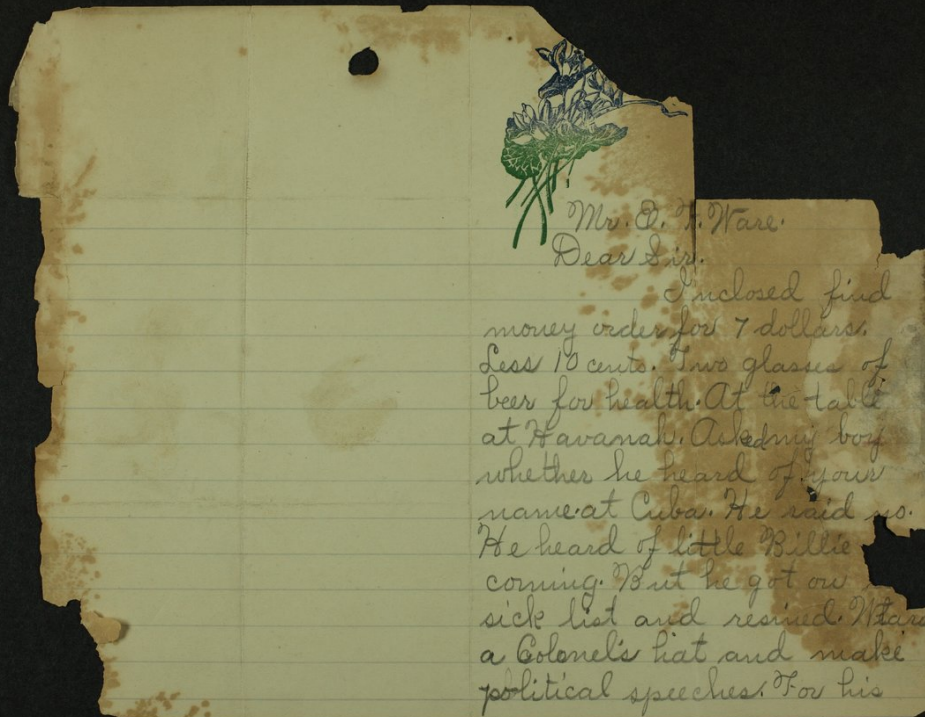 Mr. E. F. Ware.
Dear Sir.
Inclosed find
money order for 7 dollars.
Less 10 cents. Two glasses of
beer for health. At the table
at Havanah. Asked my boy
whether he heard of your
name at Cuba. He said no.
He heard of little Billie
coming. But he got on
sick list and resined.
a Colonel's hat and make
political speeches. For his